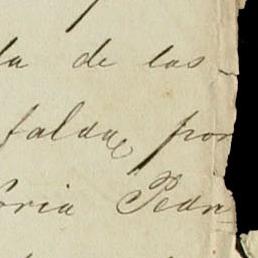 la de las
faldas por
oria Pedr